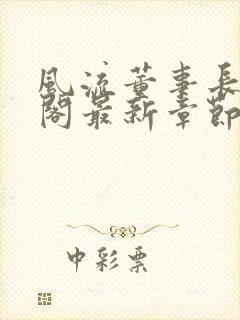 风流董事长
阁最新章节
中彩票